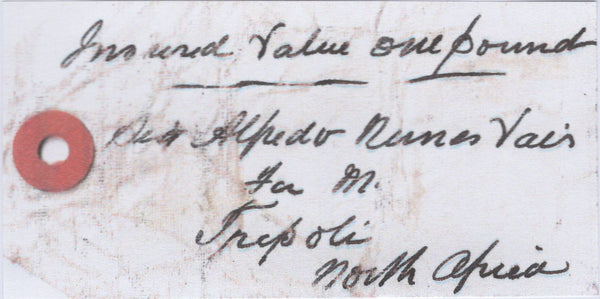 Insured Value one pound
Sir Alfredo Nunes Vais
For M.
Trepoli
North Africa